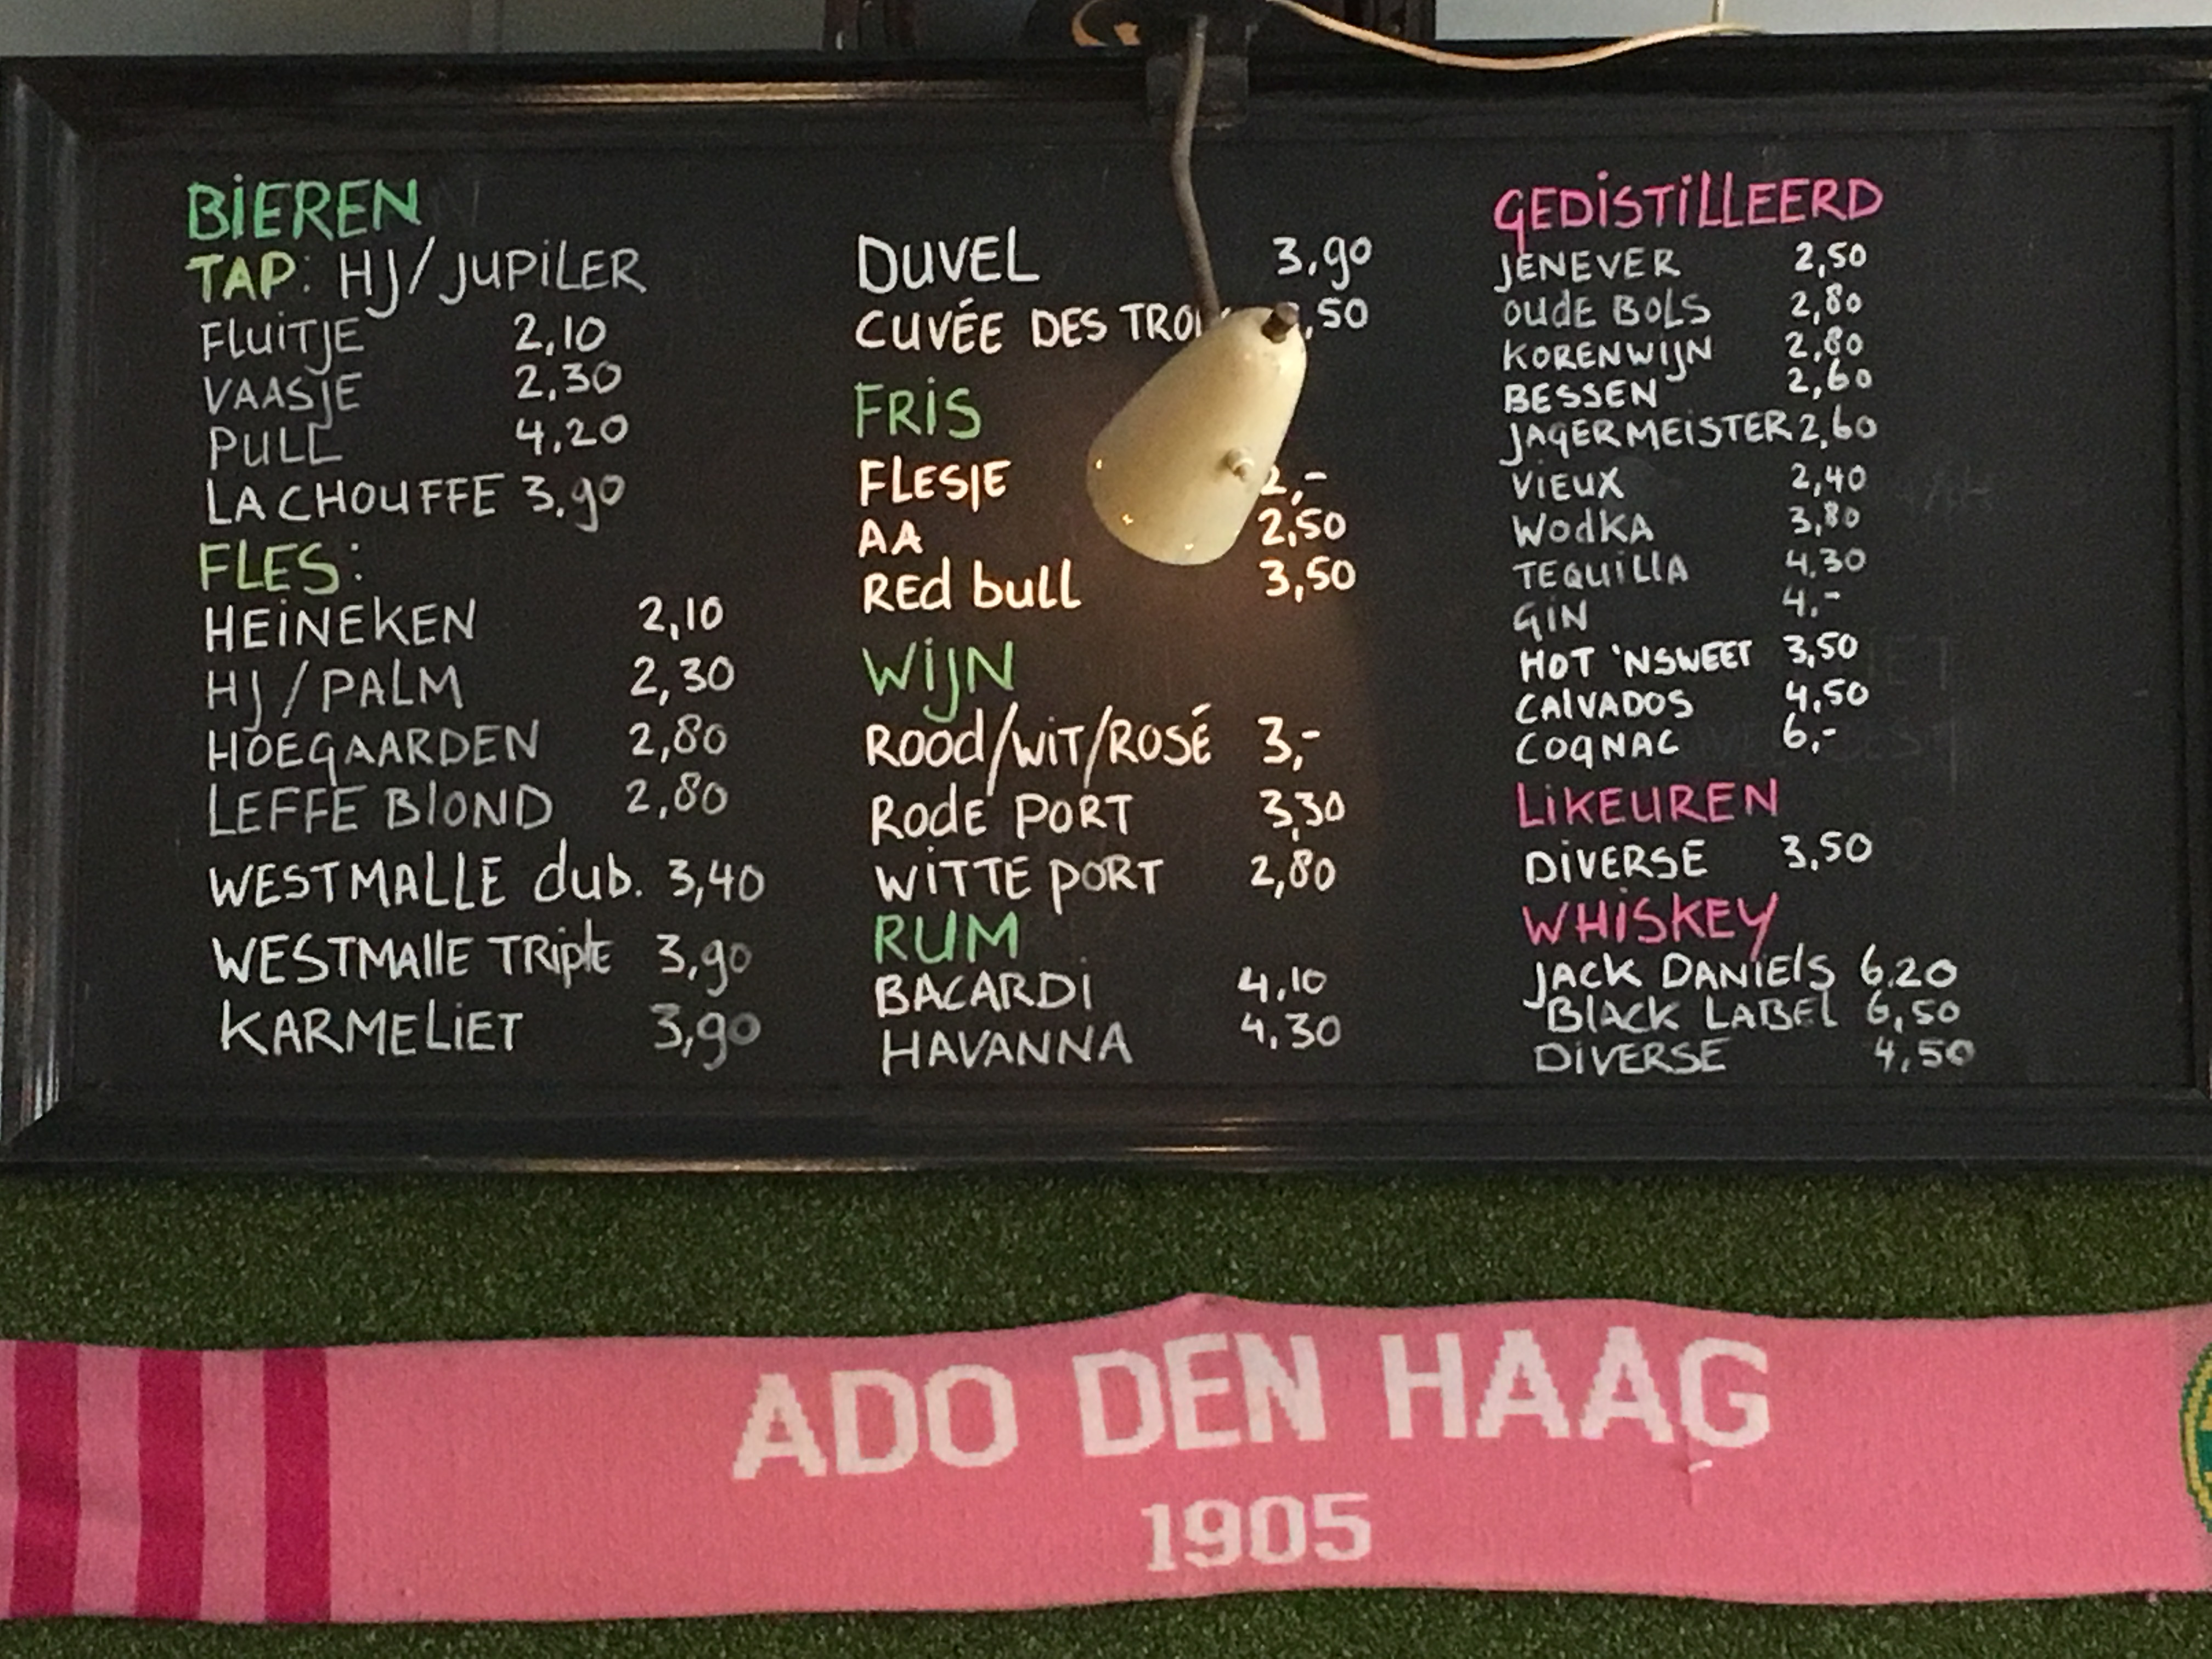 BIEREN
TAP: HJ/JUPILER
FLUITJE 2,10
VAASJE 2,30
PULL 4,20
LA CHOUFFE 3,90
FLES:
HEINEKEN 2,10
HJ/PALM 2,30
HOEGAARDEN 2,80
LEFFE BLOND 2,80
WESTMALLE dub. 3,40
WESTMALLE TRIPLE 3,90
KARMELIET 3,90
DUVEL 3,90
CUVÉE DES ,50
FRIS
FLESJE 2,-
AA 2,50
REd bull 3,50
WIJN
ROOD/WIT/ROSÉ 3,-
RODE PORT 3,30
WITTE PORT 2,80
RUM
BACARDI 4,10
HAVANNA 4,30
GEDISTILLEERD
JENEVER 2,50
OUDE BOLS 2,80
KORENWIJN 2,80
BESSEN 2,60
JAGERMEISTER 2,60
VIEUX 2,40
WODKA 3,80
TEQUILLA 4,30
GIN 4,-
HOT 'NSWEET 3,50
CALVADOS 4,50
COGNAC 6,-
LIKEUREN
DIVERSE 3,50
WHISKEY
JACK DANIELS 6.20
BLACK LABEL 6,50
DIVERSE 4,50
ADO DEN HAAG
1905